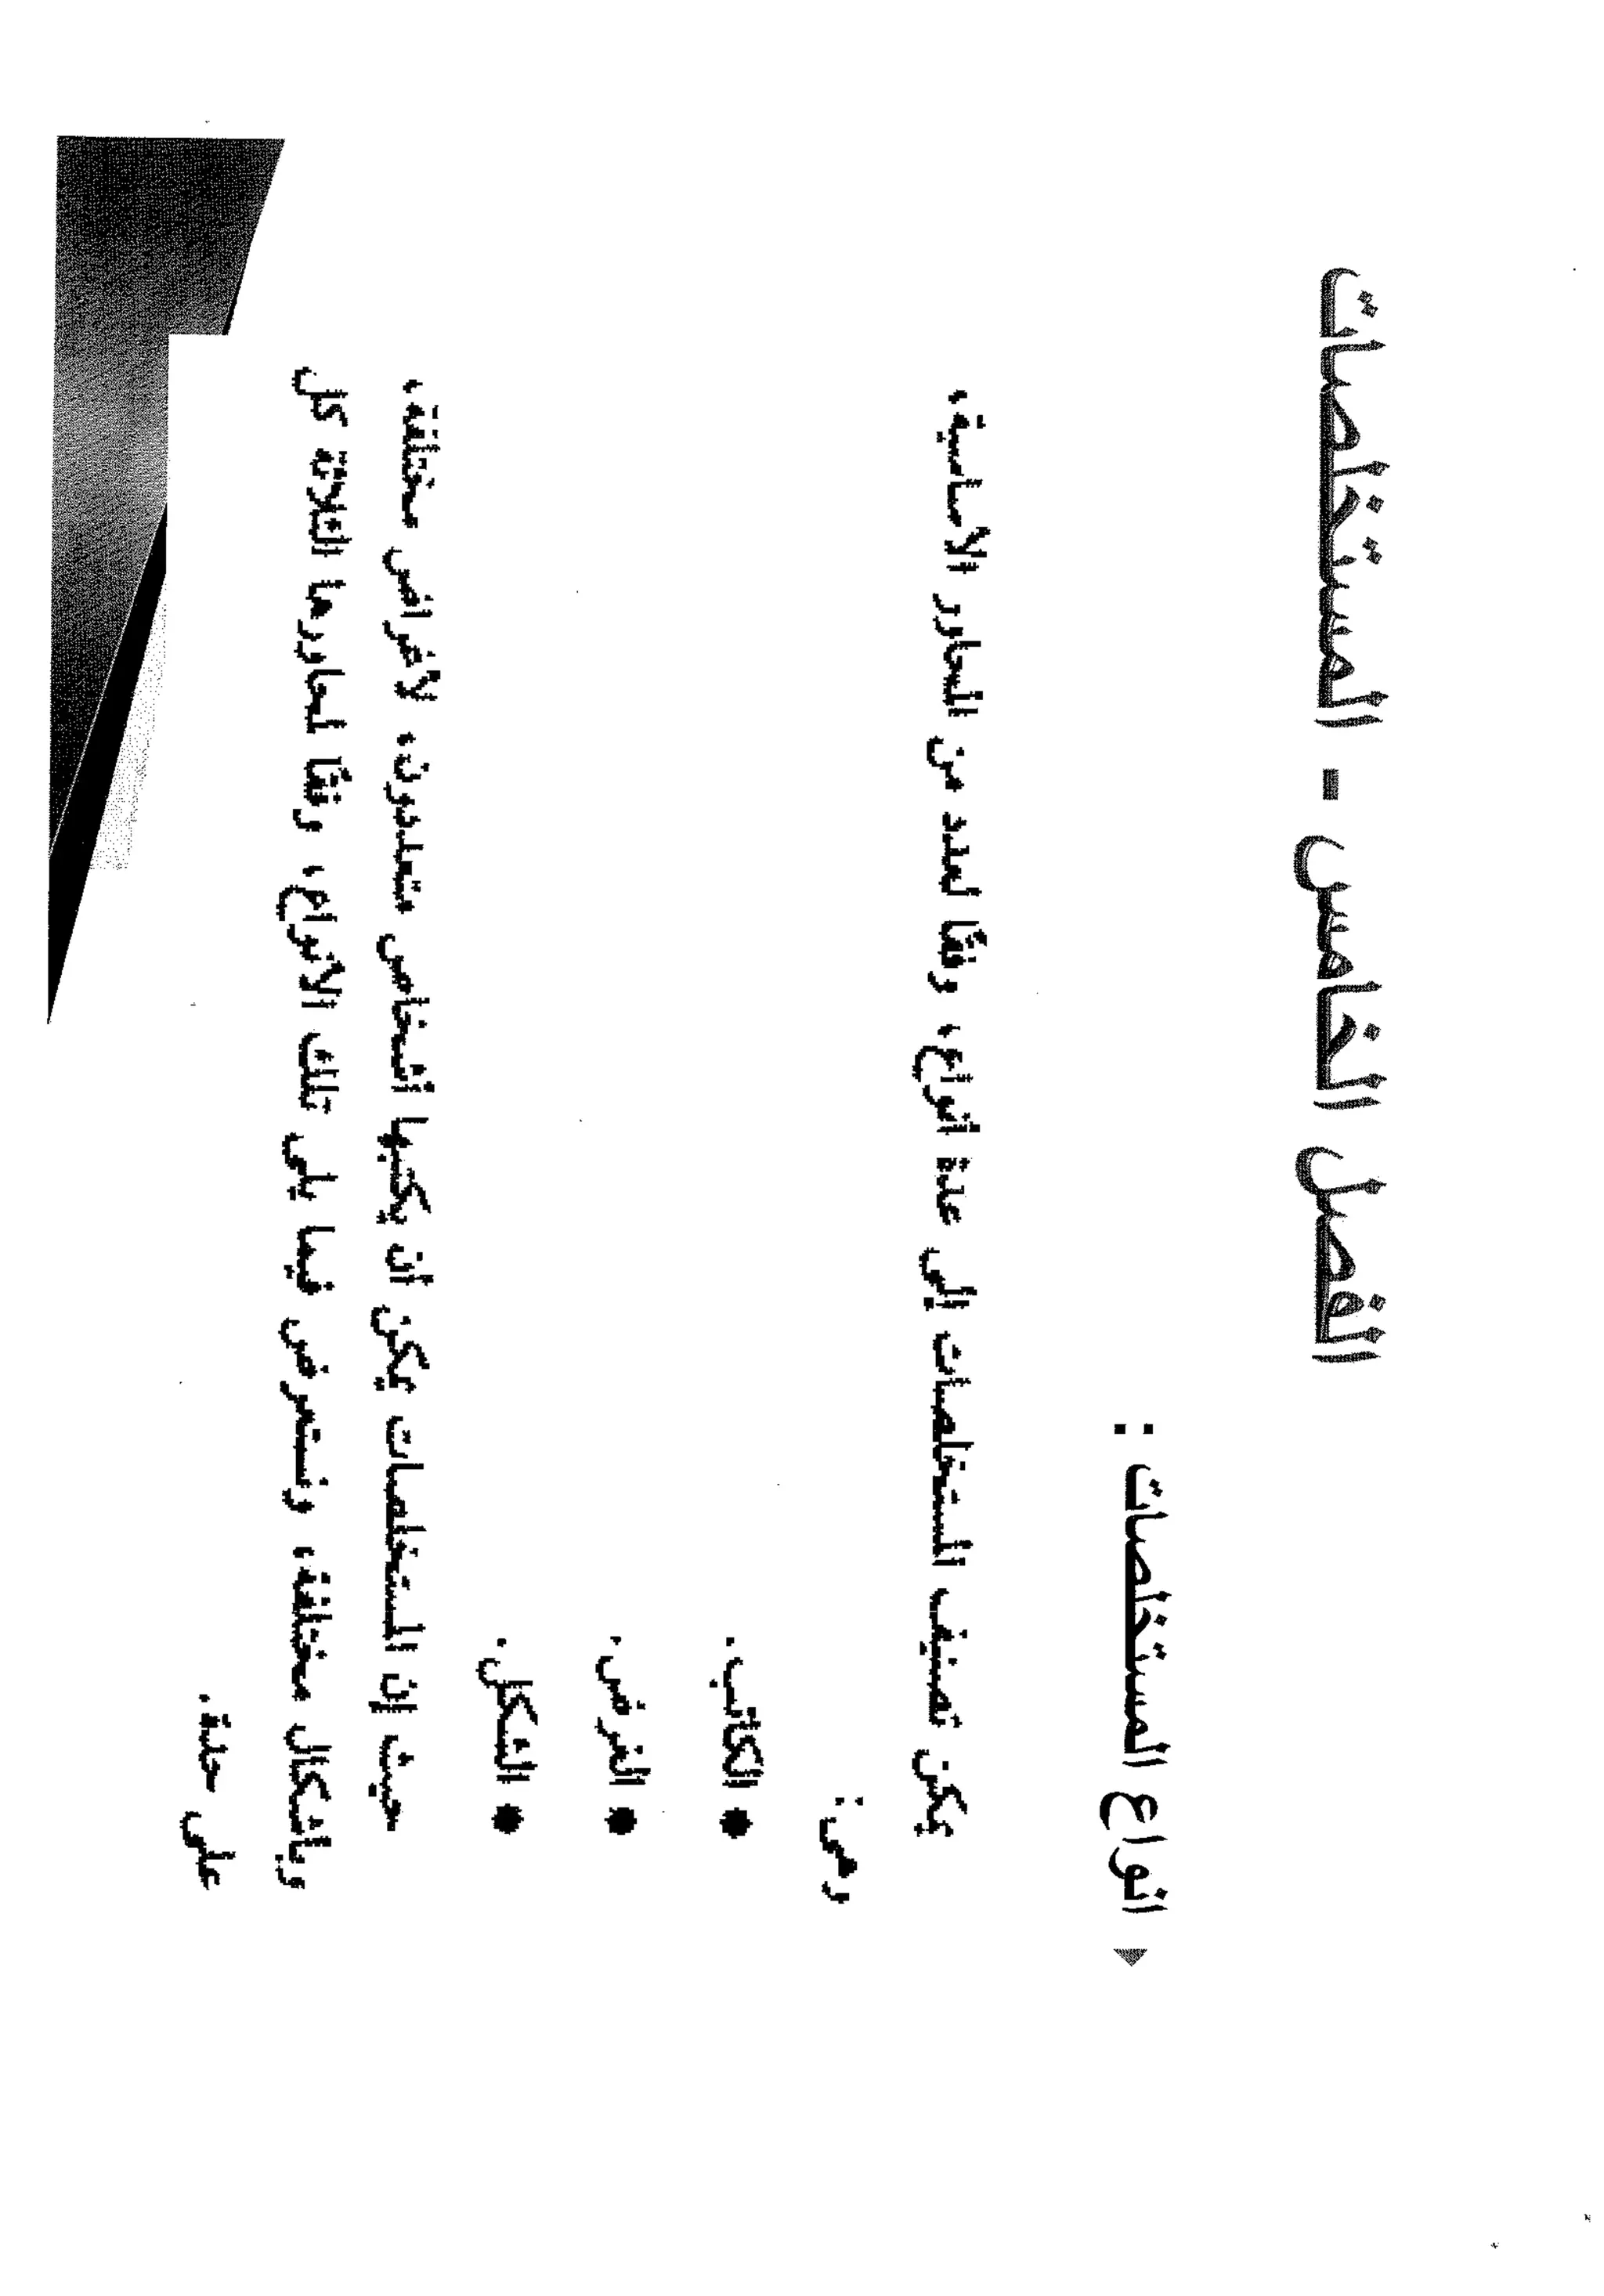 الفصل الخامس - المستخلصات
انواع المستخلصات :
يمكن تصنيف المستخلصات إلى عدة أنواع، وفقًا لعدد من المحاور الأساسية،
وهى:
● الكاتب.
● الغرض.
● الشكل.
حيث إن المستخلصات يمكن أن يكتبها أشخاص متعددون، لأغراض مختلفة،
وبأشكال مختلفة، ونستعرض فيما يلى تلك الأنواع، وفقًا لمحاورها الثلاثة كل
على حدة.